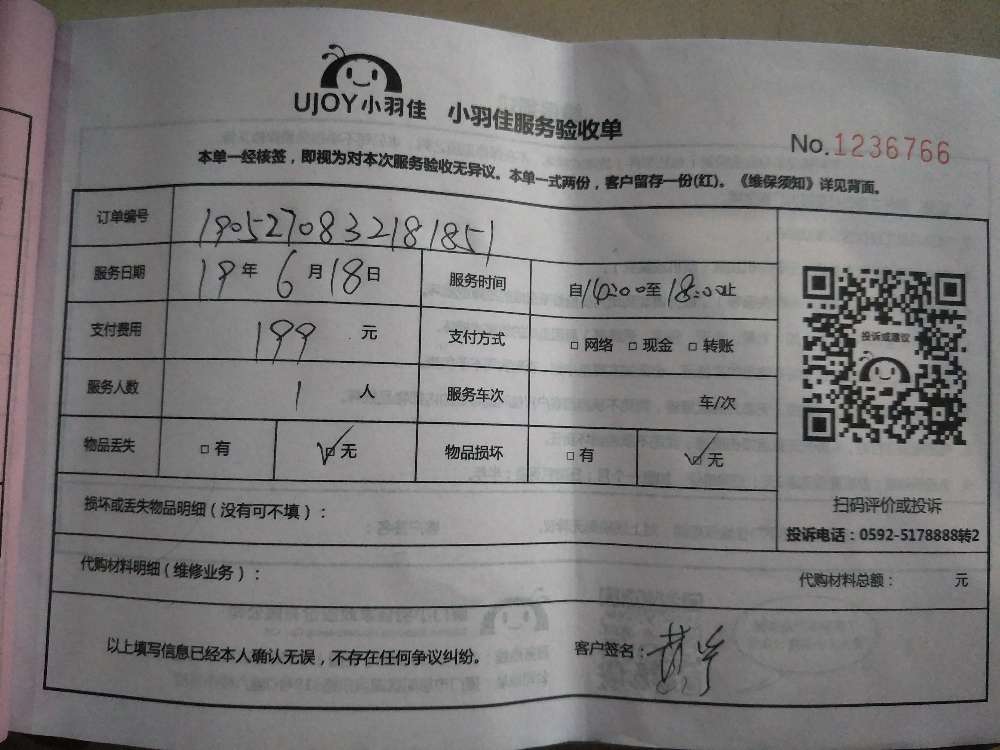 UJOY小羽佳 小羽佳服务验收单
No.1236766
本单一经核签，即视为对本次服务验收无异议。本单一式两份，客户留存一份(红)。《维保须知》详见背面。
订单编号 1905270832181851
服务日期 19年6月18日 服务时间 自14:00至18:00止
支付费用 199 元 支付方式 □网络 □现金 □转账
投诉或建议
服务人数 1 人 服务车次 车/次
物品丢失 □有 ☑无 物品损坏 □有 ☑无
扫码评价或投诉
损坏或丢失物品明细（没有可不填）：
投诉电话：0592-5178888转2
代购材料明细（维修业务）： 代购材料总额： 元
以上填写信息已经本人确认无误，不存在任何争议纠纷。 客户签名：